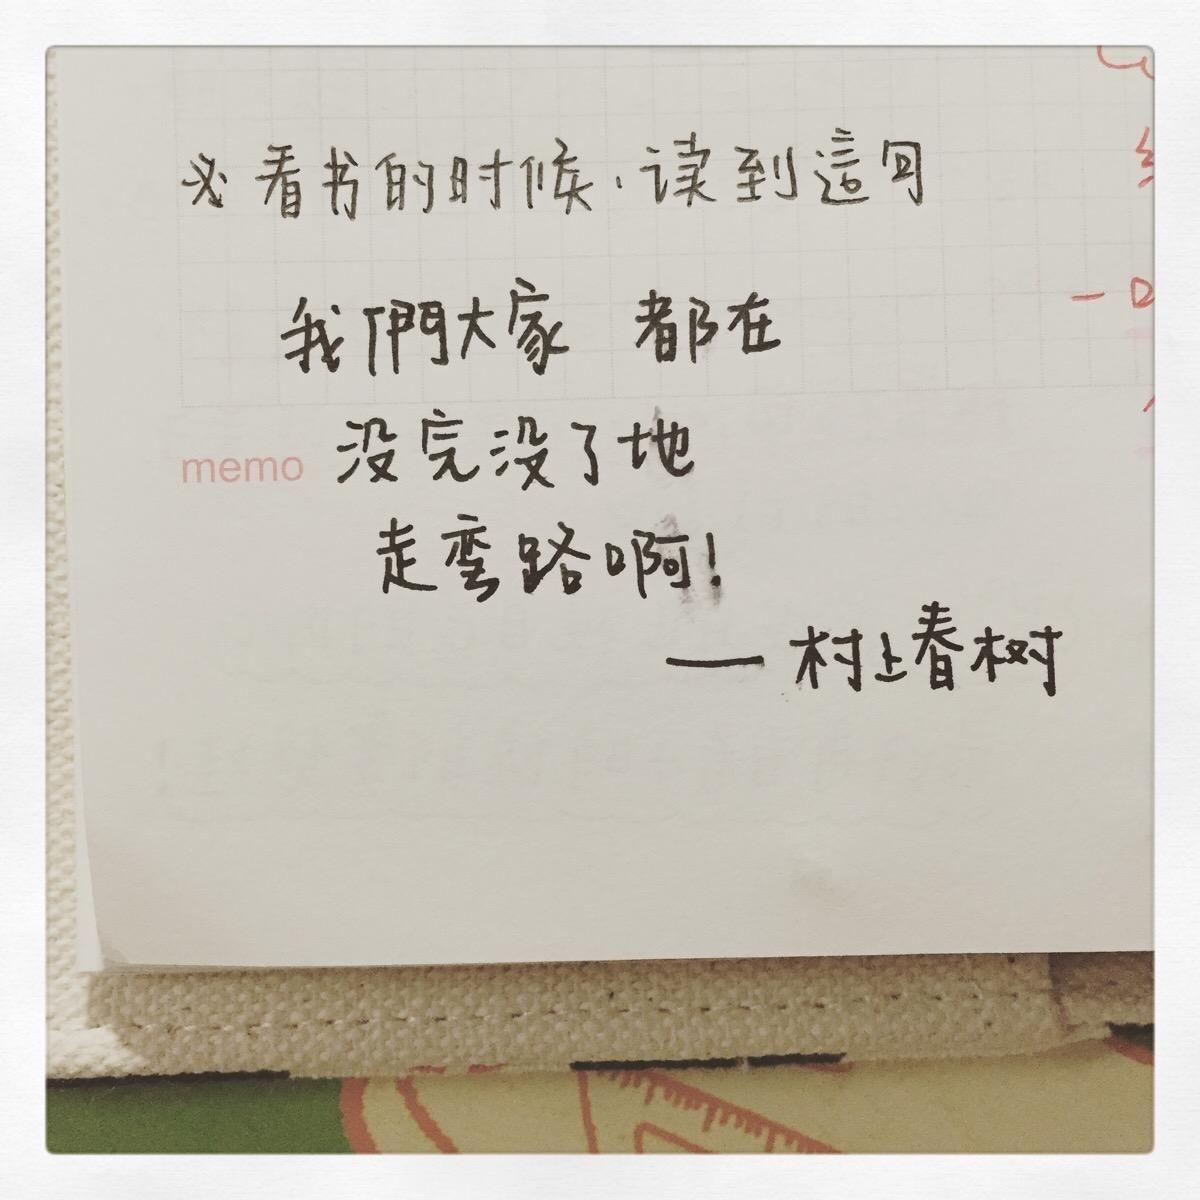 ※看书的时候.读到這句
我們大家 都在
memo 没完没了地
走弯路啊!
— 村上春树